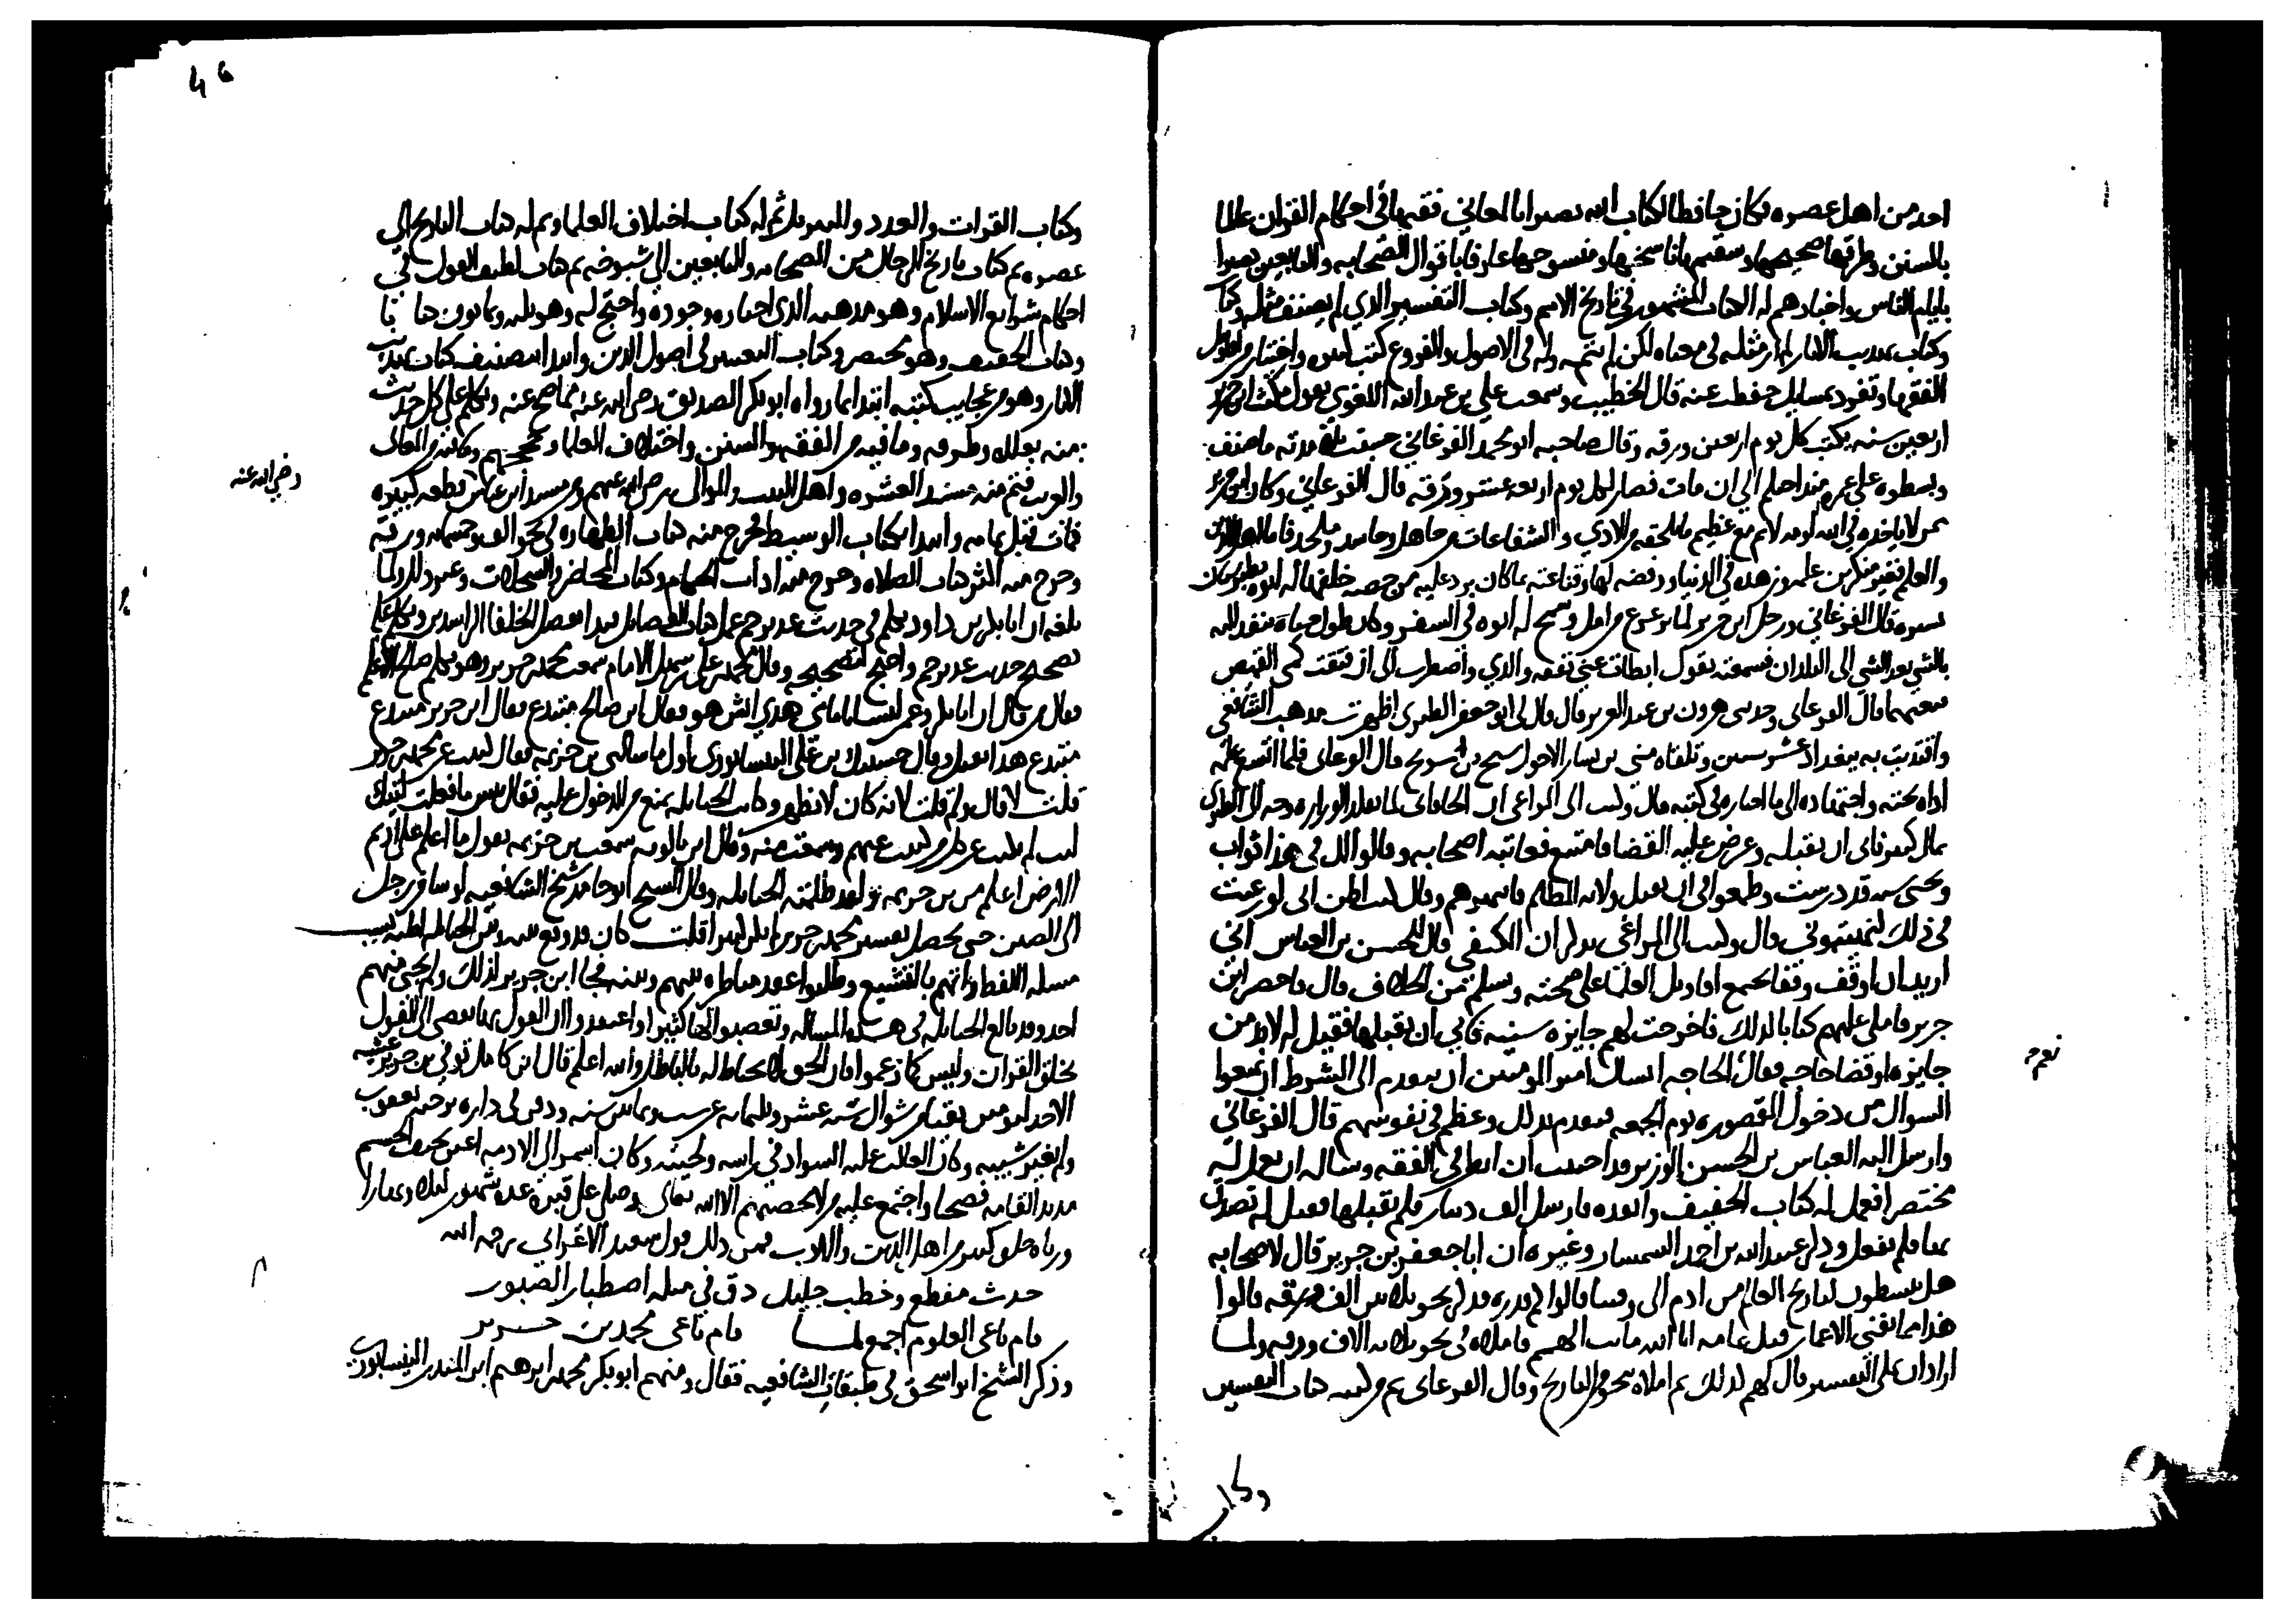 احد من اهل عصره فكان حافظا لكتاب الله بصيرا بالمعاني فقيها في احكام القران عالما
بالسنن وطرقها صحيحها وسقيمها ناسخها ومنسوخها عارفا باقوال الصحابه والتابعين بصيرا
بايام الناس واخبارهم له الكتاب المشهور في تاريخ الامم وكتاب التفسير الذي لم يصنف مثله وكتاب
وكتاب تهذيب الاثار لم ار مثله في معناه لكن لم يتمه وله في الاصول والفروع كتب كثيره واختيار من اقاويل
الفقها وتفرد بمسايل حفظت عنه قال الخطيب وسمعت علي بن عبد الله اللغوي يقول مكث ابن جرير
اربعين سنه يكتب كل يوم اربعين ورقه وقال صاحبه ابو محمد الفرغاني حسبت مدته ما صنف
وبسطوه على عمره منذ احتلم الى ان مات فصار لكل يوم اربعه عشر ورقه قال الفرغاني وكان ابن جرير
ممن لا ياخذه في الله لومه لايم مع عظيم ما يلحقه من الاذي والشناعات من جاهل وحاسد وملحد فاما اهل الدين
والعلم فغير منكرين علمه وزهده في الدنيا ورفضه لها وقناعته بما كان يرد عليه من حصه خلفها له ابوه بطبرستان
يسيره قال الفرغاني ورحل ابن جرير لما ترعرع من امل وسمح له ابوه في السفر وكان طول حياته ينفذ اليه
بالشي بعد الشي الى البلدان فسمعته يقول ابطات عني نفقه والدي واضطررت الى ان فتقت كمى القميص
فبعتهما قال الفرغاني وحدثني هرون بن عبد العزيز قال قال لي ابو جعفر الطبري اظهرت مذهب الشافعي
واقتديت به ببغداد عشر سنين وتلقاه مني بن بشار الاحول شيخ بن سريج قال الفرغاني فلما اتسع علمه
اداه بحثه واجتهاده الى ما اختاره في كتبه قال وكتب الى المراغي ان الخاقاني لما تقلد الوزاره وجه الى الطبري
بمال كثير فابى ان يقبله وعرض عليه القضا فامتنع فعاتبه اصحابه وقالوا لك في هذا ثواب
وتحيي سنه قد درست وطمعوا في ان يقبل ولايه المظالم فانتهرهم وقال كنت اظن اني لو رغبت
في ذلك لنهيتموني قال وكتب الي المراغي يذكر ان المكتفي قال للحسن بن العباس اني
اريد ان اوقف وقفا تجتمع اقاويل العلما على صحته ويسلم من الخلاف قال فاحضر ابن
جرير فاملى عليهم كتابا لذلك فاخرجت لهم جايزه سنيه فابى ان يقبلها فقيل له لا بد من
جايزه او قضا حاجه فقال الحاجه اسال امير المومنين ان يتقدم الى الشرط ان يمنعوا
السوال من دخول المقصوره يوم الجمعه فتقدم بذلك وعظم في نفوسهم قال الفرغاني
وارسل اليه العباس بن الحسن الوزير قد احببت ان انظر في الفقه وساله ان يعمل له
مختصرا فعمل له كتاب الخفيف وانفذه فارسل الف دينار فلم يقبلها فقيل له تصدق
بها فلم يفعل وذكر عبد الله بن احمد السمسار وغيره ان ابا جعفر بن جرير قال لاصحابه
هل تنشطون لتاريخ العالم من ادم الى وقتنا قالوا كم قدره فذكر نحو ثلاثين الف ورقه قالوا
هذا مما يفني الاعمار قبل تمامه فقال انا لله ماتت الهمم فاملاه في نحو ثلاثه الاف ورقه ولما
اراد ان يملي التفسير قال لهم كذلك ثم املاه بنحو من التاريخ وقال الفرغاني تم من كتبه كتاب التفسير
نعم
وكتاب
وكتاب القرات والعدد والتنزيل ثم له كتاب اختلاف العلما وتم له كتاب التاريخ الى
عصره ثم كتاب تاريخ الرجال من الصحابه والتابعين الى شيوخه ثم كتاب لطيف القول في
احكام شرايع الاسلام وهو مذهبه الذي اختاره وجوده واحتج له وهو ثلثه وثمانون كتابا
وكتاب الخفيف وهو مختصر وكتاب التبصير في اصول الدين وابتدا بتصنيف كتاب تهذيب
الاثار وهو من عجايب كتبه ابتدا بما رواه ابو بكر الصديق رضي الله عنه مما صح عنه وتكلم على كل حديث
منه بعلله وطرقه وما فيه من الفقه والسنن واختلاف العلما وحججهم وما فيه من المعاني
والغريب فتم منه مسند العشره واهل البيت والموالي رضي الله عنهم ومن مسند ابن عباس قطعه كبيره
رضي الله عنه
فمات قبل تمامه وابتدا بكتاب البسيط فخرج منه كتاب الطهاره في نحو الف وخمسمايه ورقه
وخرج منه اكثر كتاب الصلاه وخرج منه اداب الحكام وكتاب المحاضر والسجلات وغير ذلك ولما
بلغه ان ابا بكر بن داود تكلم في حديث غدير خم عمل كتاب الفضايل فبدا بفضل الخلفا الراشدين وتكلم على
تصحيح حديث غدير خم واحتج لتصحيحه وقال محمد بن علي بن سهل الامام سمعت محمد بن جرير وهو يكلم ابن صالح الاعلم
فقال من قال ان ابا بكر وعمر ليسا بامامي هدي ايش هو فقال ابن صالح مبتدع فقال ابن جرير مبتدع
مبتدع هذا يقتل وقال حسينك بن علي النيسابوري اول ما سالني بن خزيمه فقال كتبت عن محمد بن جرير
قلت لا قال ولم قلت لانه كان لا يظهر وكانت الحنابله تمنع من الدخول عليه فقال بيس ما فعلت ليتك
لم تكتب عن كل من كتبت عنهم وسمعت منه وقال ابن بالويه سمعت بن خزيمه يقول ما اعلم على اديم
الارض اعلم من بن جرير ولقد ظلمته الحنابله وقال الشيخ ابو حامد شيخ الشافعيه لو سافر رجل
الى الصين حتى يحصل تفسير محمد بن جرير لم يكن كثيرا قلت كان قد وقع بينه وبين الحنابله بسبب
مسله اللفظ واتهم بالتشيع وطلبوا عقد مناظره بينهم وبينه فجا ابن جرير لذلك ولم يجي منهم
احد وقد بالغ الحنابله في هذه المساله وتعصبوا لها كثيرا واعتقدوا ان القول بها يفضي الى القول
بخلق القران وليس كما زعموا فان الحق لا يحتاط له بالباطل والله اعلم قال ابن كامل توفي بن جرير عشيه
الاحد ليومين بقيتا من شوال سنه عشر وثلثمايه عن ست وثمانين سنه ودفن في داره برحبه يعقوب
ولم يغير شيبه وكان الغالب عليه السواد في راسه ولحيته وكان اسمر الى الادمه اعين نحيف الجسم
مديد القامه فصيحا واجتمع عليه من لا يحصيهم الا الله تعالى وصلي على قبره عده شهور ليلا ونهارا
ورثاه خلق كثير من اهل الدين والادب فمن ذلك قول سعيد الاعرابي رحمه الله
حدث مفظع وخطب جليل دق في مثله اصطبار الصبور
قام ناعى العلوم اجمع لما قام ناعى محمد بن جرير
وذكر الشيخ ابو اسحق في طبقات الشافعيه فقال ومنهم ابو بكر محمد بن ابرهيم ابن المنذر النيسابوري